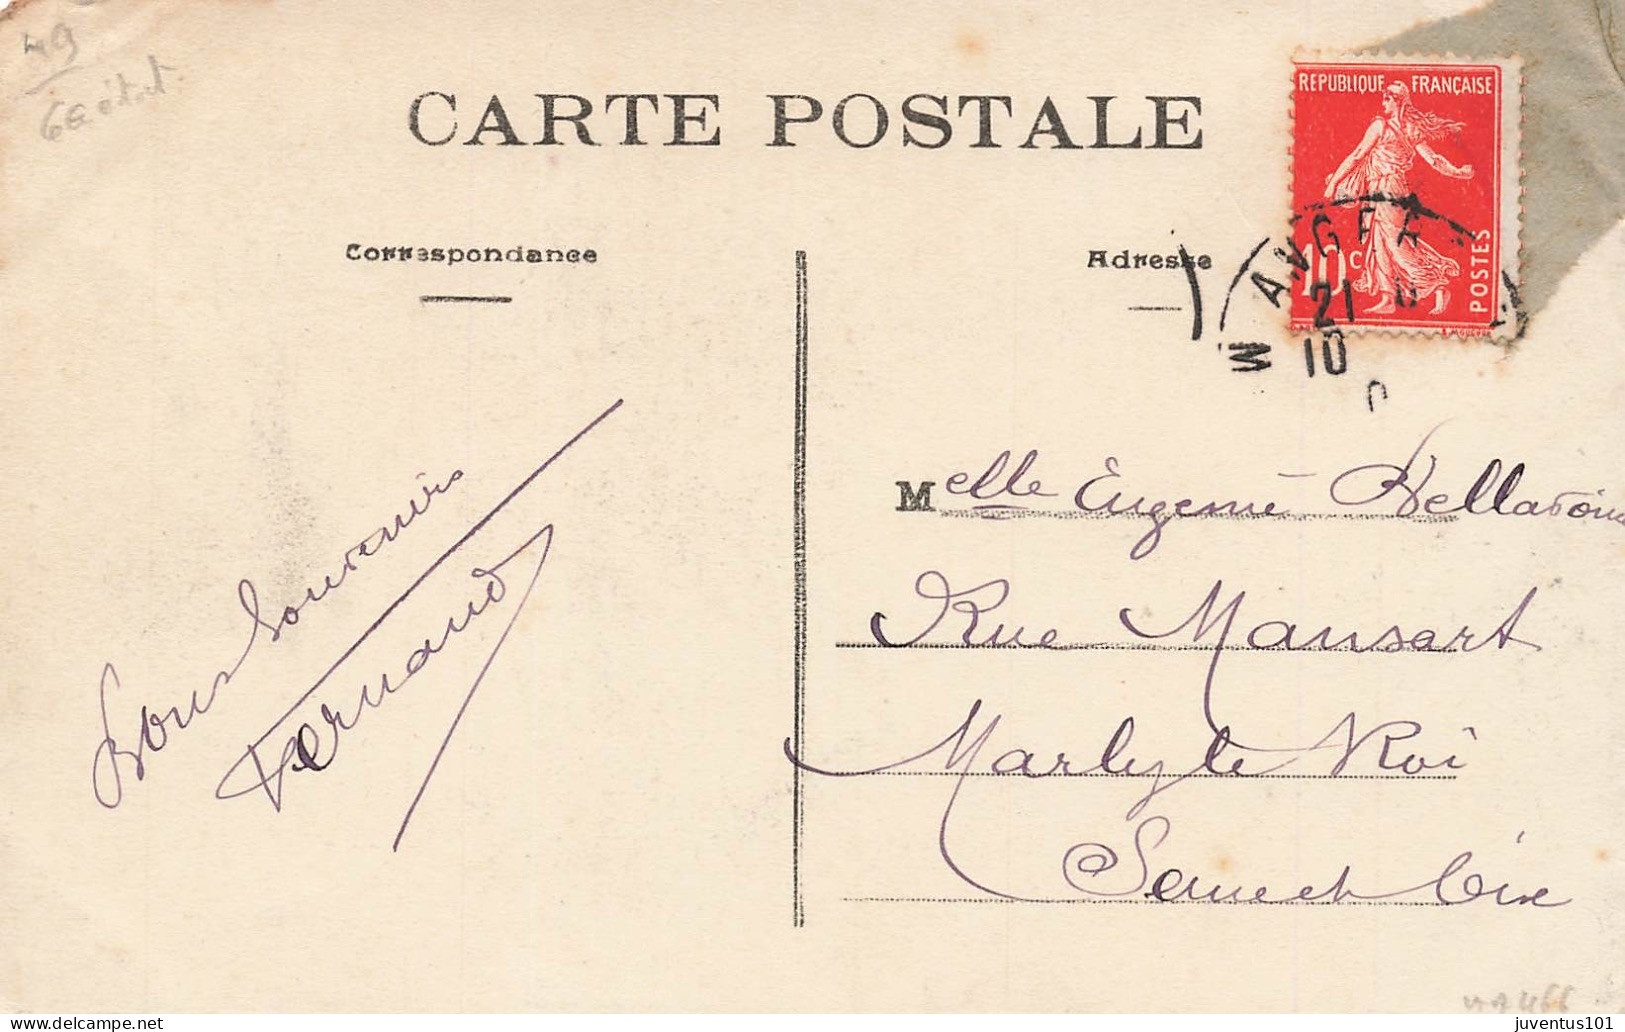 49
CARTE POSTALE
REPUBLIQUE FRANÇAISE
10c
POSTES
ANGER
21
10
Correspondance
Adresse
Bons Souvenirs
Fernand
Melle Eugénie
Rue Mansart
Marly le Roi
Seine et Oise
juventus101